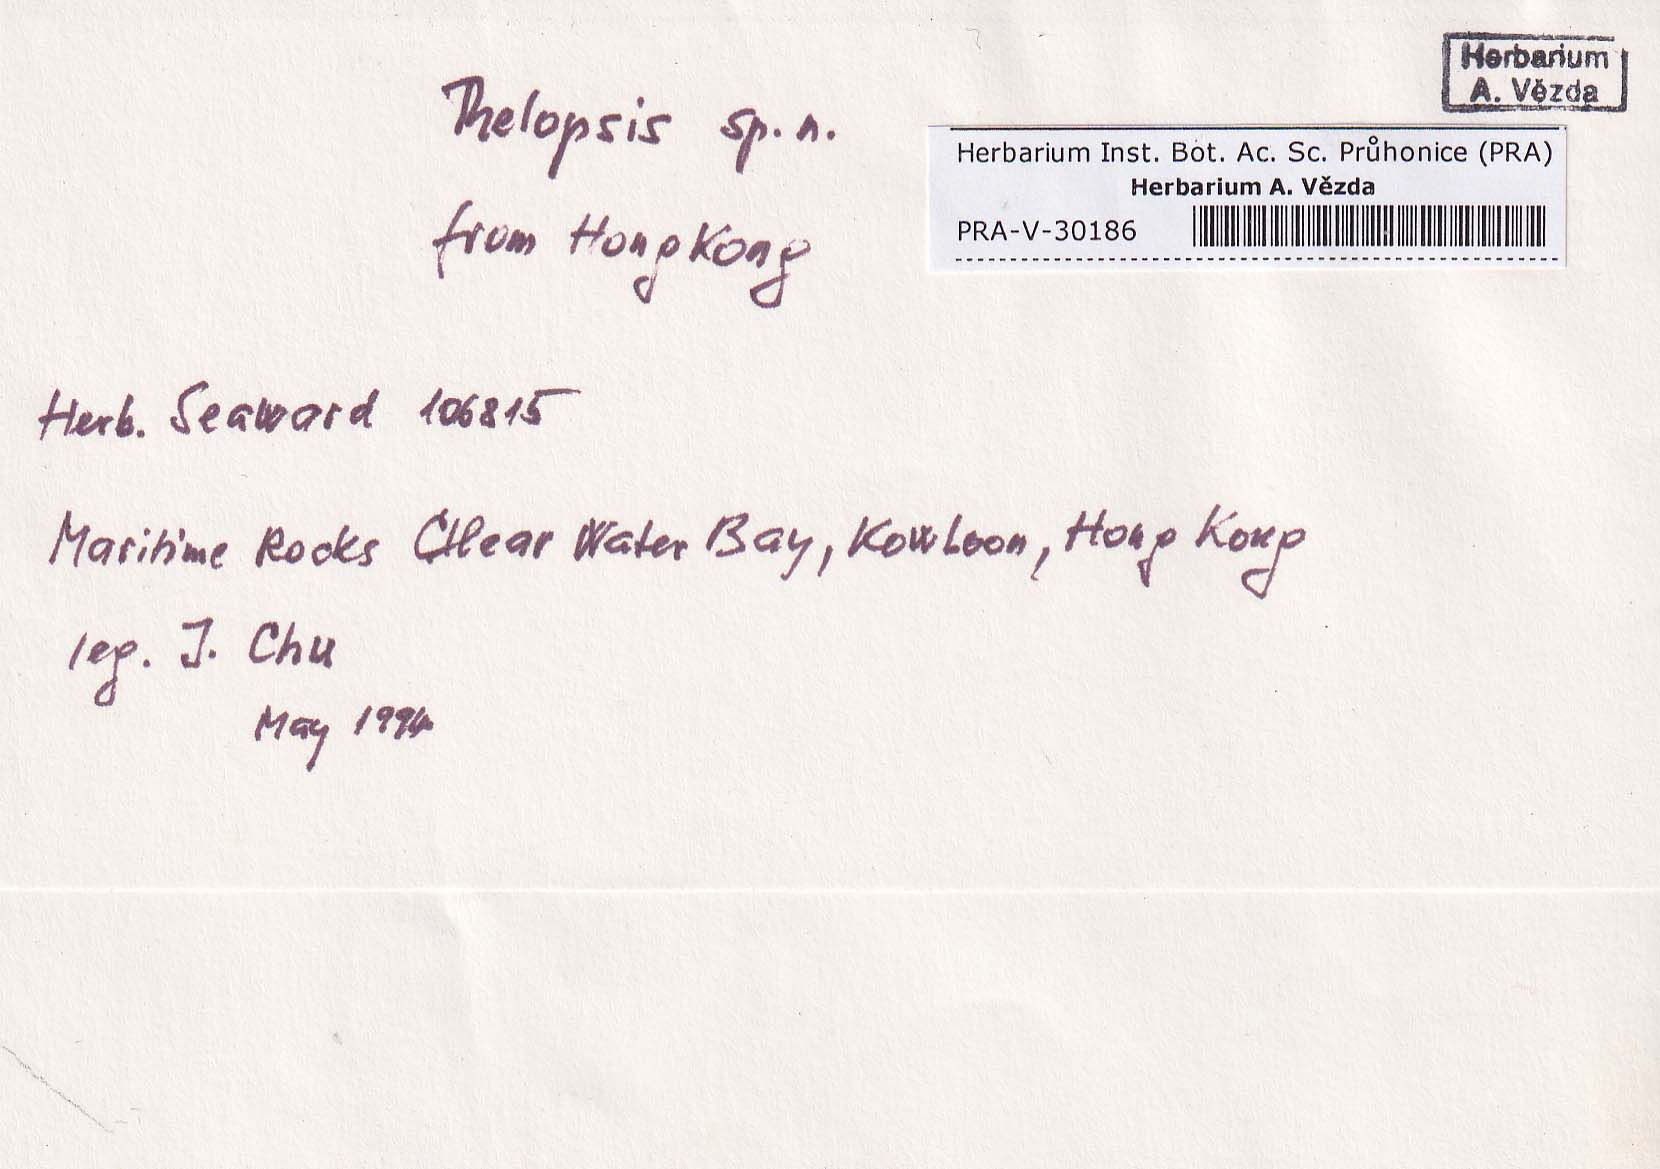 Herbarium
A. Vězda
Thelopsis sp. n.
from HongKong
Herbarium Inst. Bot. Ac. Sc. Průhonice (PRA)
Herbarium A. Vězda
PRA-V-30186
Herb. Seaward 106815
Maritime Rocks Clear Water Bay, Kowloon, Hong Kong
leg. J. Chu
May 1994